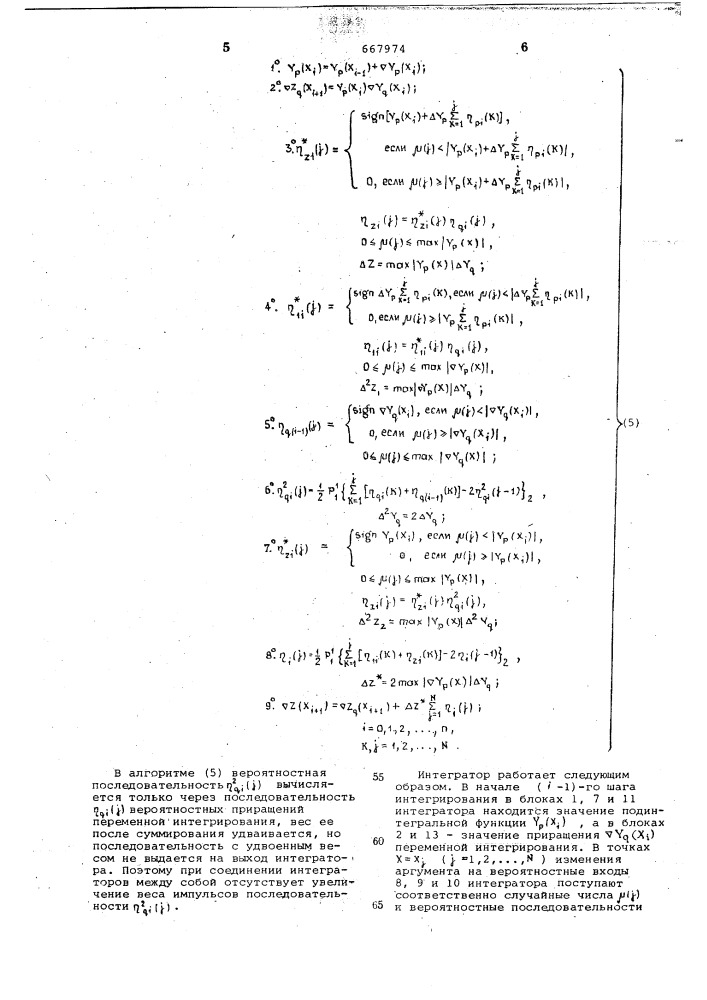 5 667974 6
1°. Yp(Xi)=Yp(Xi-1)+∇Yp(Xi);
2°. ∇Zq(Xi+1)=Yp(Xi)∇Yq(Xi);
sign[Yp(Xi)+ΔYp Σ(K=1..j) ηpi(K)],
3°. η*zi(j)= { если μ(j)<|Yp(Xi)+ΔYp Σ(K=1..j) ηpi(K)|,
0, если μ(j)≥|Yp(Xi)+ΔYp Σ(K=1..j) ηpi(K)|,
ηzi(j)=η*zi(j)ηqi(j),
0≤μ(j)≤max|Yp(X)|,
ΔZ=max|Yp(X)|ΔYq;
4°. η*1i(j)= { sign ΔYp Σ(K=1..j) ηpi(K), если μ(j)<|ΔYp Σ(K=1..j) ηpi(K)|,
0, если μ(j)≥|Yp Σ(K=1..j) ηpi(K)|,
η1i(j)=η*1i(j)ηqi(j),
0≤μ(j)≤max|∇Yp(X)|,
Δ²Z1=max|∇Yp(X)|ΔYq;
5°. ηq(i-1)(j)= { sign ∇Yq(Xi), если μ(j)<|∇Yq(Xi)|, (5)
0, если μ(j)≥|∇Yq(Xi)|,
0≤μ(j)≤max|∇Yq(X)|;
6°. η²qi(j)=½P¹1{Σ(K=1..j)[ηqi(K)+ηq(i-1)(K)]-2η²qi(j-1)}2,
Δ²Yq=2ΔYq;
7°. η*zi(j)= { sign Yp(Xi), если μ(j)<|Yp(Xi)|,
0, если μ(j)≥|Yp(Xi)|,
0≤μ(j)≤max|Yp(X)|,
ηzi(j)=η*zi(j)η²qi(j),
Δ²Z2=max|Yp(X)|Δ²Yq;
8°. ηi(j)=½P¹1{Σ(K=1..j)[η1i(K)+ηzi(K)]-2ηi(j-1)}2,
ΔZ*=2max|∇Yp(X)|ΔYq;
9°. ∇Z(Xi+1)=∇Zq(Xi+1)+ΔZ* Σ(j=1..N) ηi(j);
i=0,1,2,...,n,
K,j=1,2,...,N.
В алгоритме (5) вероятностная
последовательность η²qi(j) вычисля-
ется только через последовательность
ηqi(j) вероятностных приращений
переменной интегрирования, вес ее
после суммирования удваивается, но
последовательность с удвоенным ве-
сом не выдается на выход интеграто-
ра. Поэтому при соединении интегра-
торов между собой отсутствует увели-
чение веса импульсов последователь-
ности η²qi(j).
55 Интегратор работает следующим
образом. В начале (i-1)-го шага
интегрирования в блоках 1, 7 и 11
интегратора находится значение подин-
тегральной функции Yp(Xi), а в блоках
60 2 и 13 - значение приращения ∇Yq(Xi)
переменной интегрирования. В точках
X=Xj (j=1,2,...,N) изменения
аргумента на вероятностные входы
8, 9 и 10 интегратора поступают
соответственно случайные числа μ(j)
65 к вероятностные последовательности